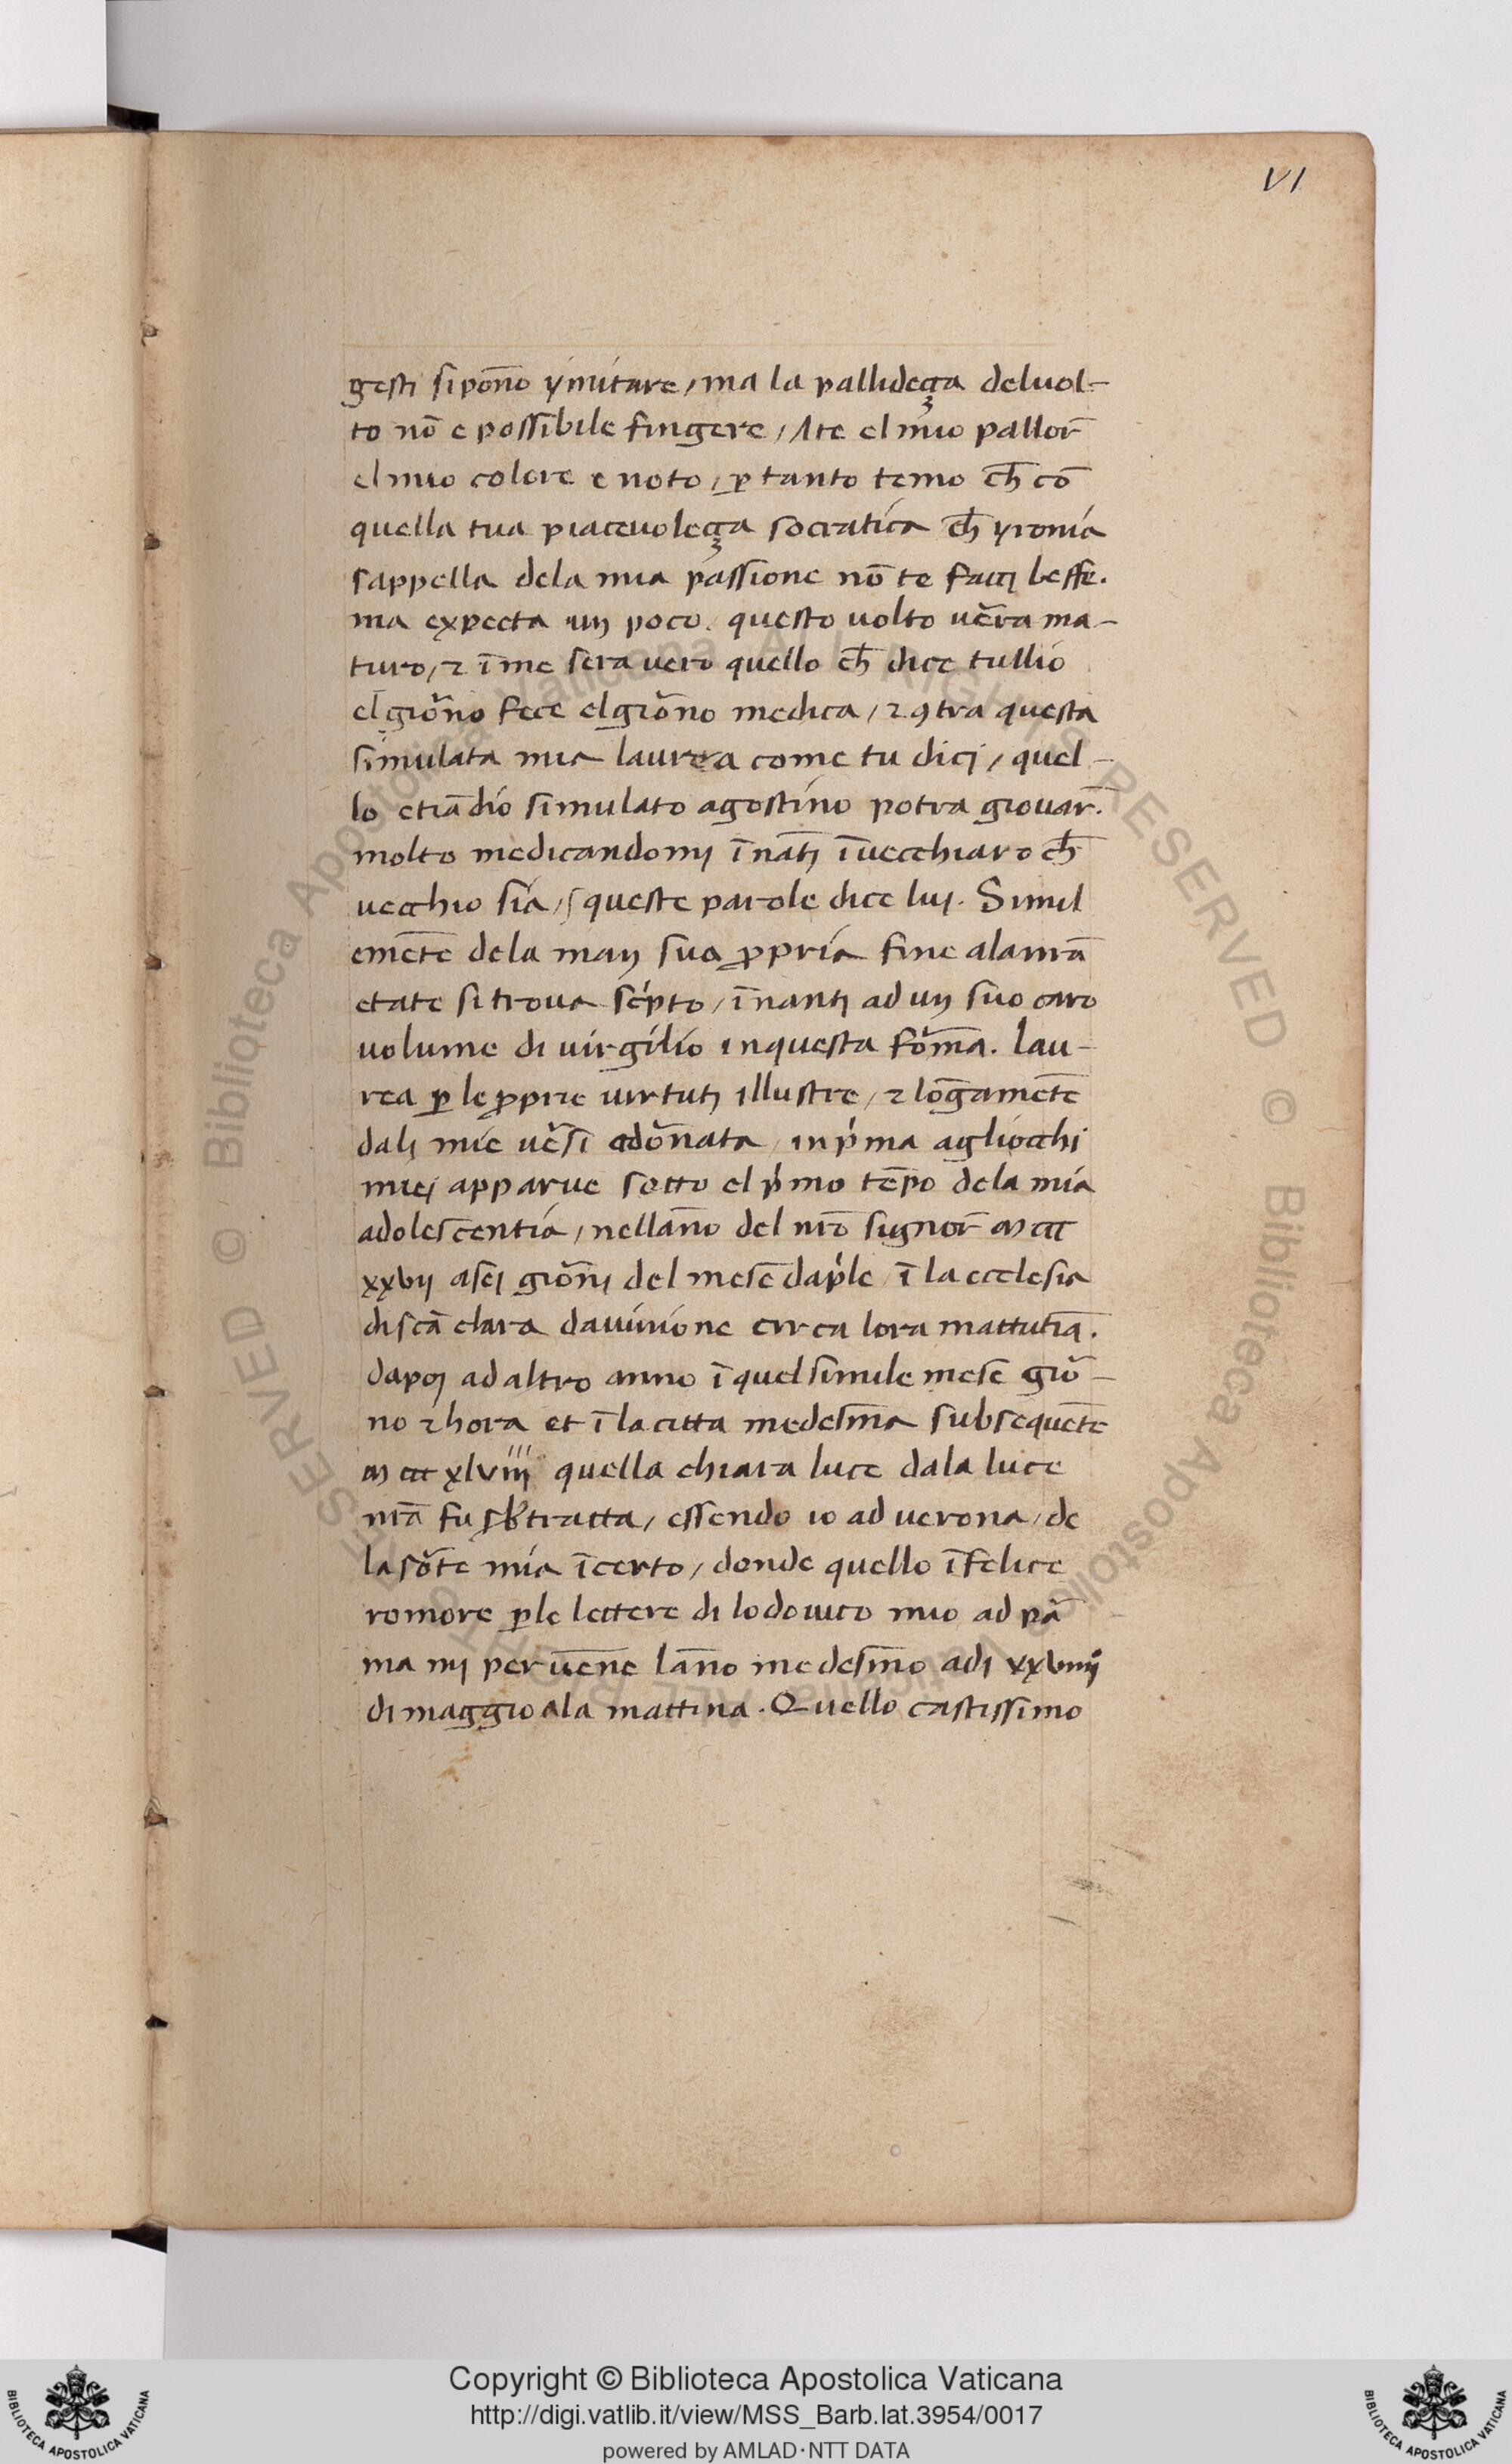 VI
gesti si pon̄o ymitare / ma la pallideʒa del uol-
to nō e possibile fingere / Ate el mio pallor̄
el mio colore e noto / ꝑ tanto temo ch̄ cō
quella tua piaceuoleʒa socratica ch̄ yronia
sappella dela mia passione nō te facij beffe.
ma expecta un poco. questo uolto uēra ma-
turo / ⁊ ī me sera uero quello ch̄ dice tullio
el giōno fece el giōno medica / ⁊ ꝯtra questa
simulata mia laurea come tu dicj / quel-
lo etiādio simulato agostino potra giouar̄.
molto medicandomj īnātj īuecchiaro ch̄
uecchio sia / queste parole dice luj. Simil
emēte dela man sua ꝓpria fine alantā
etate si troua scͥpto / īnantj ad un suo caro
uolume di uirgilio in questa fōma. Lau-
rea ꝑ le ꝓprie uirtutj illustre / ⁊ lōgamēte
dalj mie uēsi adōnata / in pͥma agliocchi
miej apparue sotto el pͥmo tēpo dela mia
adolescentia / nellan̄o del nr̄o signor̄ M ccc
xxvij asej giōnj del mese dapͥle / ī la ecclesia
di scā clara dauinione circa lora mattutīa.
dapoj ad altro anno ī quel simile mese giō-
no ⁊ hora et ī la citta medesm̄a subsequēte
M ccc xlviij quella chiara luce dala luce
nr̄a fu sbtratta / essendo io ad uerona / de
la sōte mia īcerto / donde quello īfelice
romore ꝑ le lettere di lodouico mio ad pā
ma mj peruēne lan̄o medesm̄o adj xxviiij
di maggio ala mattina. Quello castissimo
© Biblioteca Apostolica Vaticana ALL RIGHTS RESERVED
© Biblioteca Apostolica Vaticana ALL RIGHTS RESERVED
Copyright © Biblioteca Apostolica Vaticana
http://digi.vatlib.it/view/MSS_Barb.lat.3954/0017
powered by AMLAD·NTT DATA
BIBLIOTECA APOSTOLICA VATICANA
BIBLIOTECA APOSTOLICA VATICANA